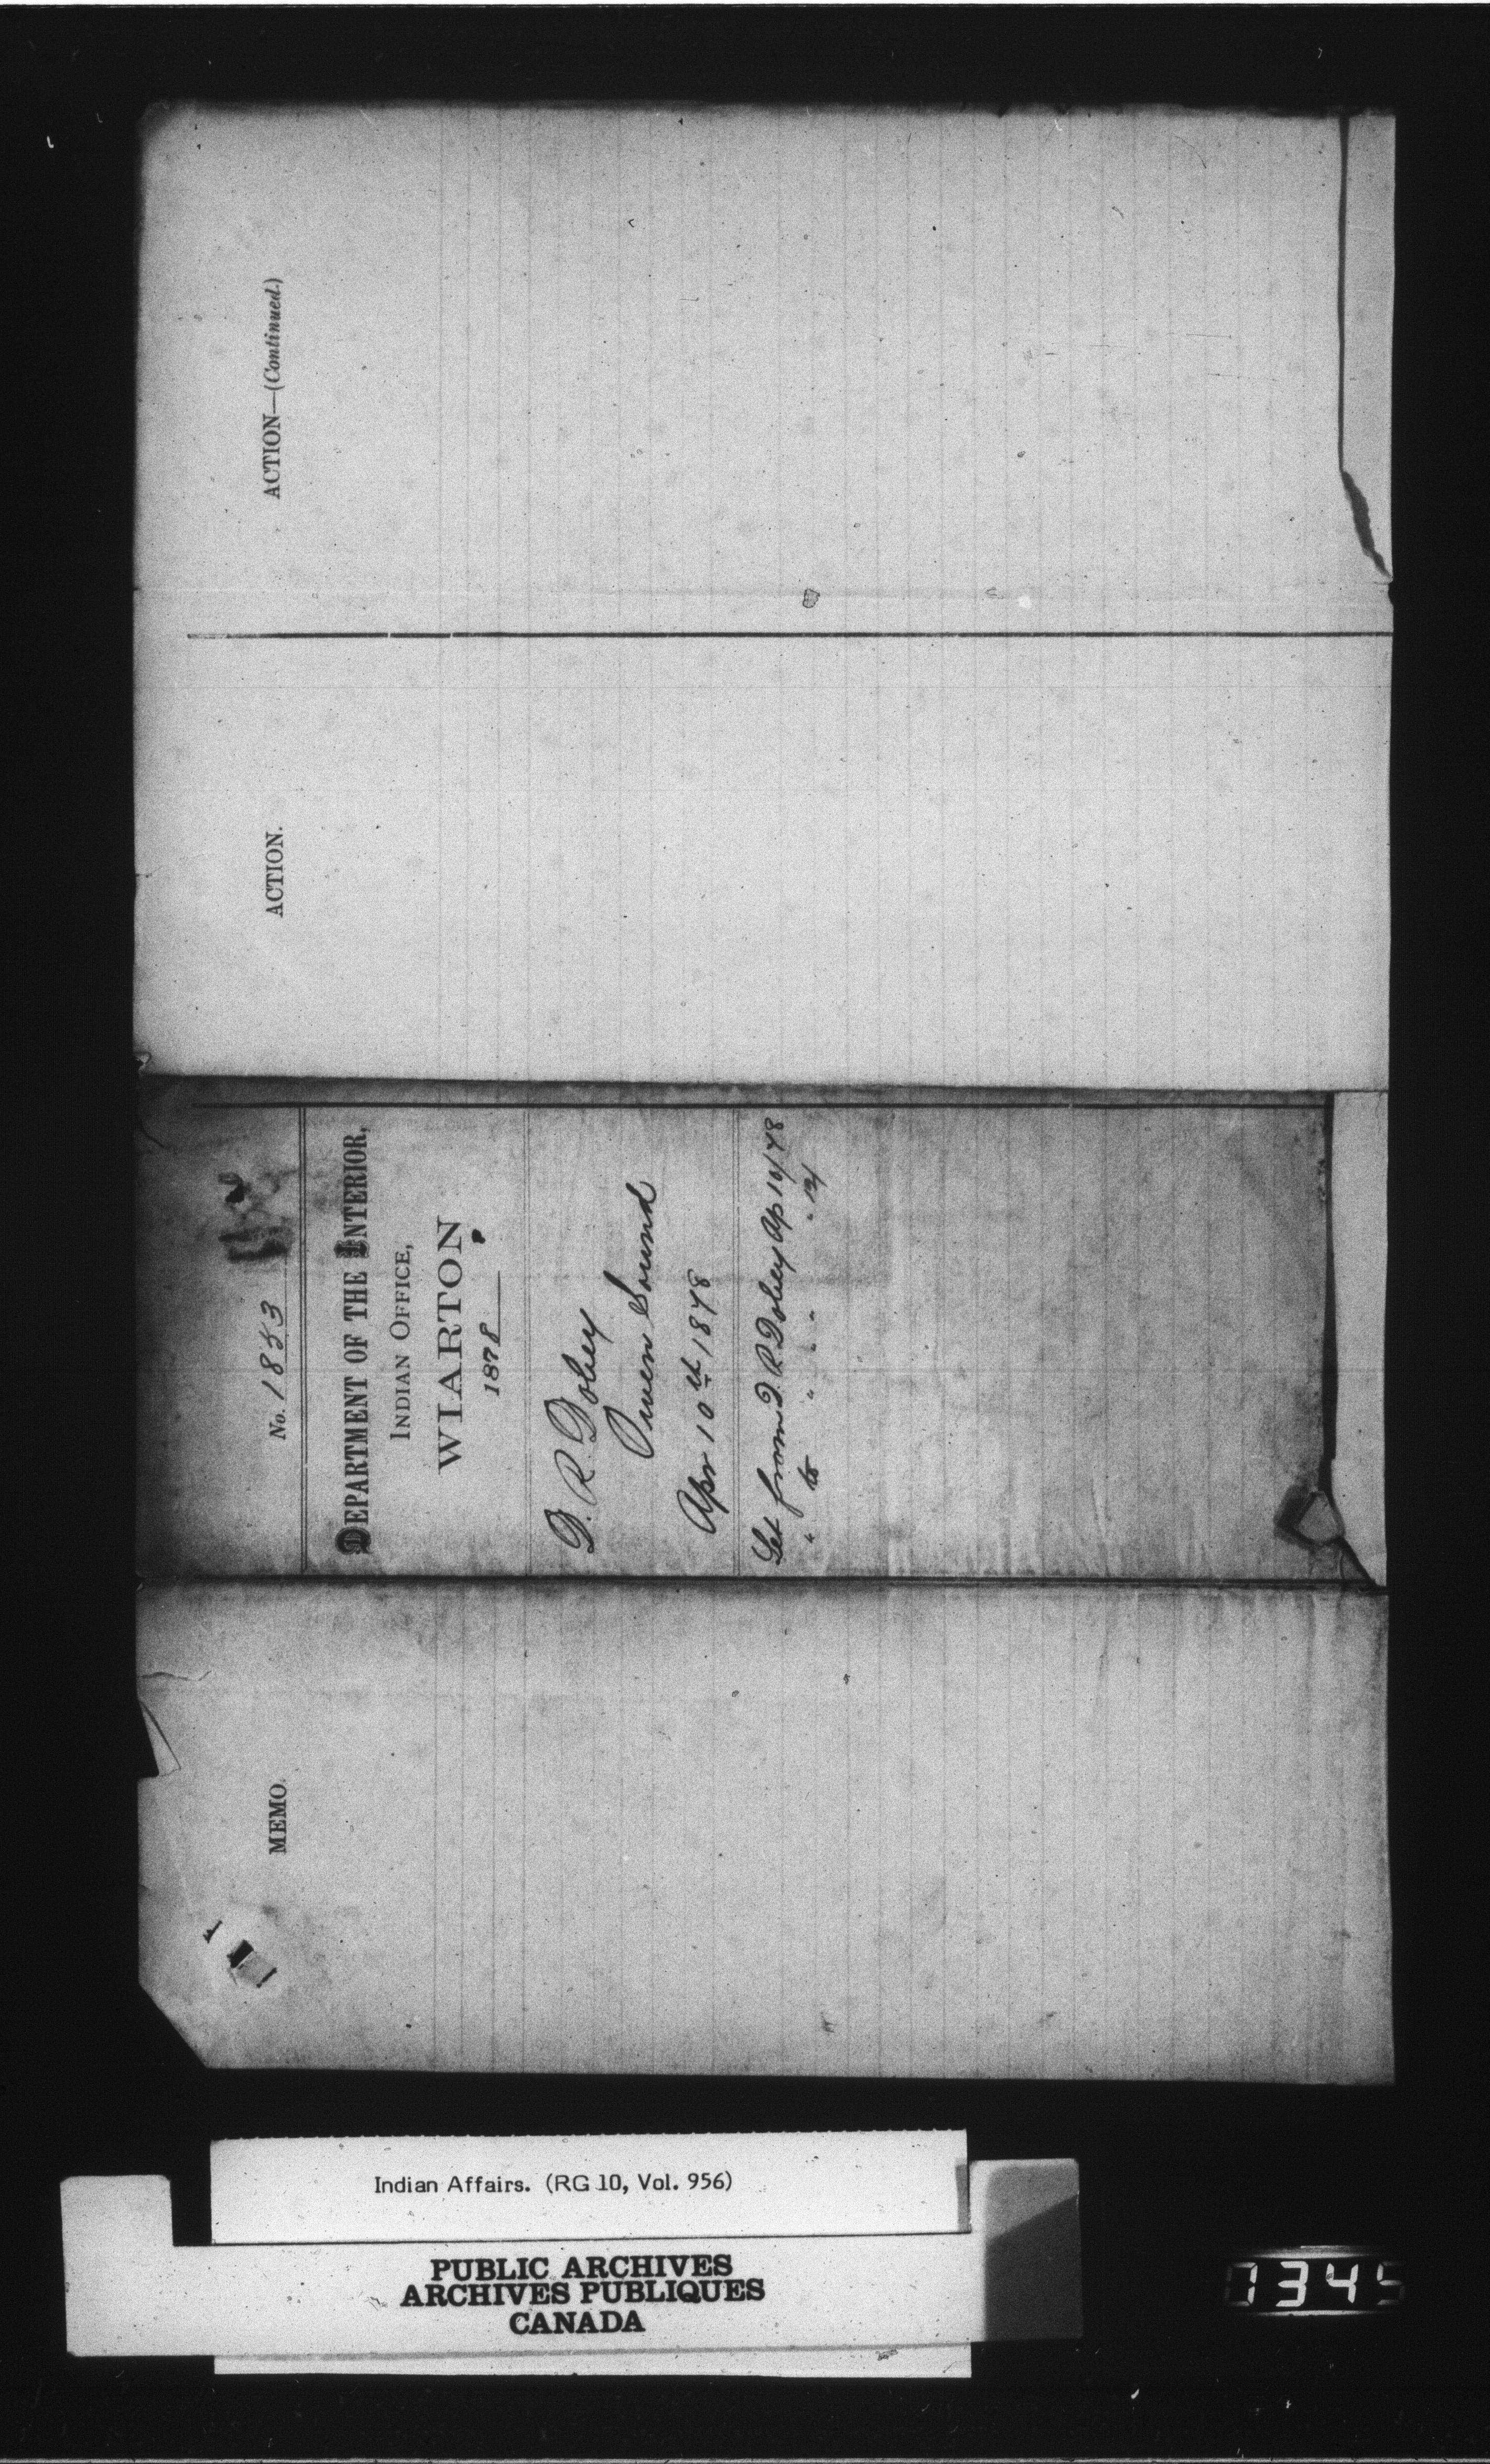 ACTION—(Continued.)
ACTION.
No. 1853
DEPARTMENT OF THE INTERIOR,
INDIAN OFFICE,
WIARTON
1878
D. R. Dobey
Owen Sound
Apr 10th 1878
Let from D. R. Dobey Ap 10/78
" to " " " " 12/
MEMO.
Indian Affairs. (RG 10, Vol. 956)
PUBLIC ARCHIVES
ARCHIVES PUBLIQUES
CANADA
1345